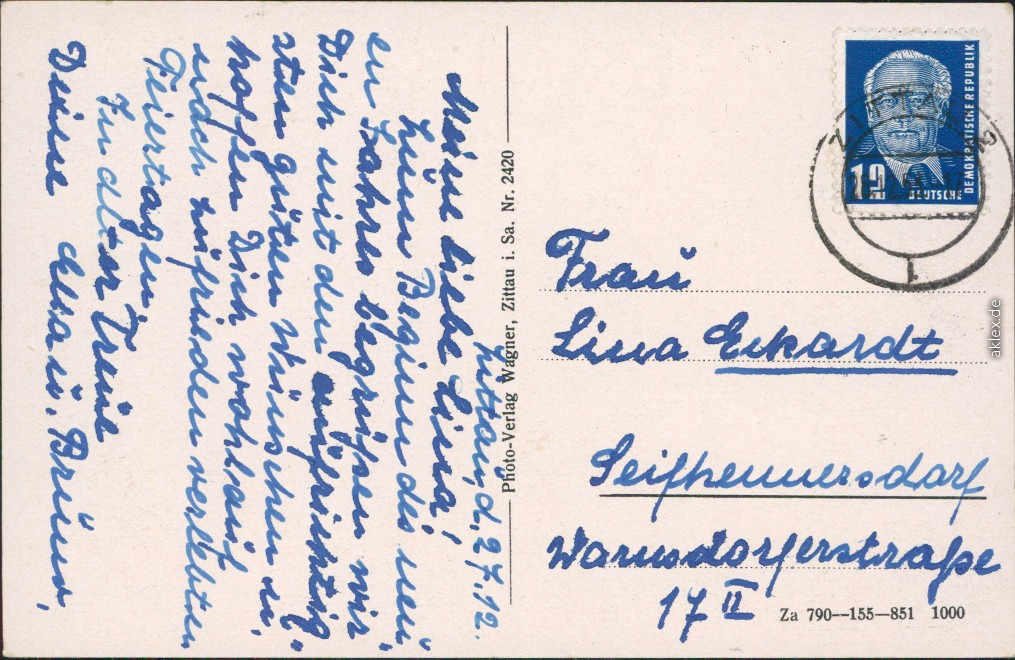 Zittau, d. 27.12.
Meine liebe Lina!
Zum Beginn des neu-
en Jahres begrüßen wir
Dich mit den aufrichtig-
sten guten Wünschen u.
hoffen Dich wohlauf
u. nach zufrieden verlebten
Feiertagen.
In alter Treue
Deine Clara u. Bruno.
Photo-Verlag Wagner, Zittau i. Sa. Nr. 2420
DEUTSCHE
DEMOKRATISCHE REPUBLIK
12
ZITTAU 2
Frau
Lina Eckardt
Seifhennersdorf
Warnsdorferstraße
17 II
Za 790—155—851 1000
aklex.de